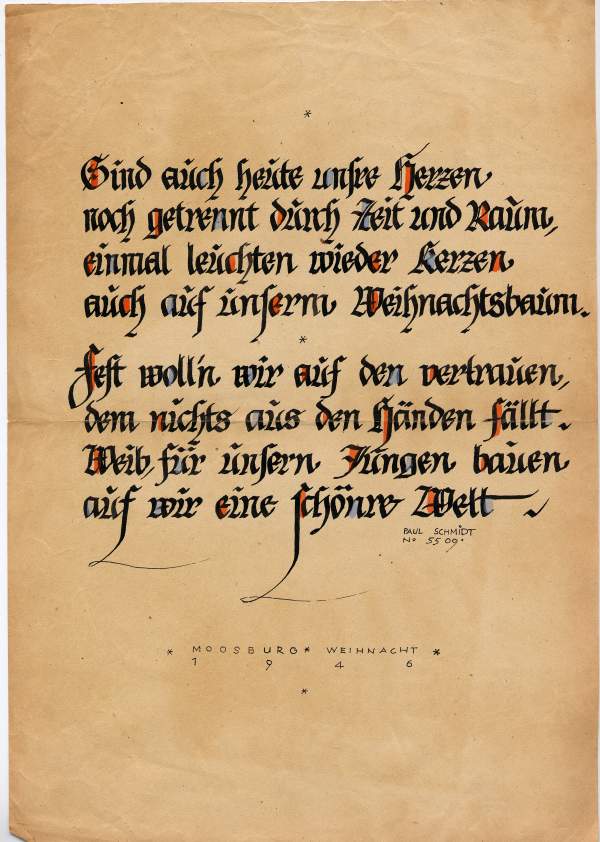 *
Sind auch heute unsre Herzen
noch getrennt durch Zeit und Raum,
einmal leuchten wieder Kerzen
auch auf unserm Weihnachtsbaum.
*
Fest woll'n wir auf den vertrauen,
dem nichts aus den Händen fällt.
Weib, für unsern Jungen bauen
auf wir eine schönre Welt.
PAUL SCHMIDT
No 5509.
* MOOSBURG * WEIHNACHT *
1 9 4 6
*